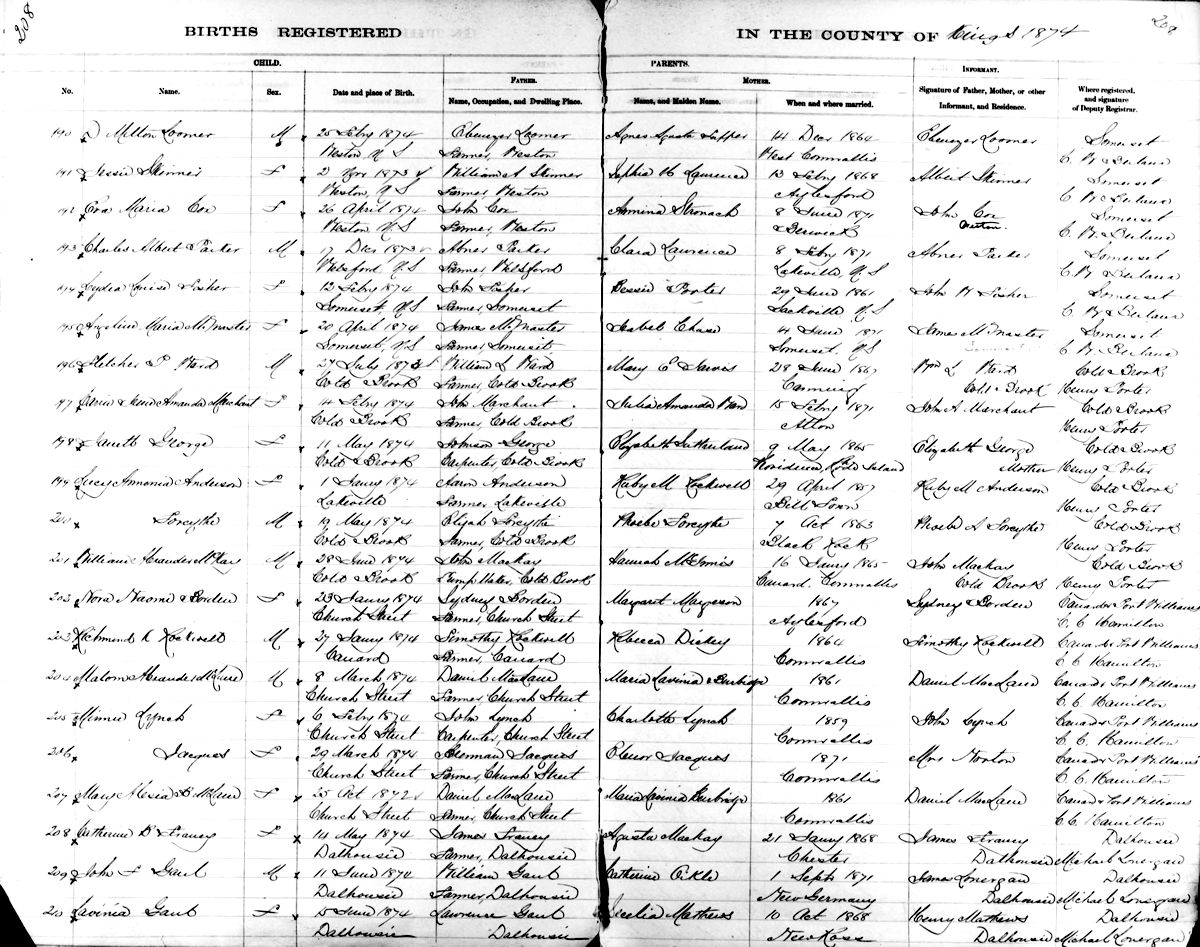 208
209
BIRTHS REGISTERED IN THE COUNTY OF Kings 1874
CHILD. PARENTS.
FATHER. MOTHER. INFORMANT.
No. Name. Sex. Date and place of Birth. Name, Occupation, and Dwelling Place. Name, and Maiden Name. When and where married. Signature of Father, Mother, or other Informant, and Residence. Where registered, and signature of Deputy Registrar.
190 D Milton Loomer M 25 Feby 1874 Ebenezer Loomer Agnes Agusta 14 Decr 1864 Ebenezer Loomer Somerset
Weston N S Farmer, Weston West Cornwallis
191 Jessie Skinner F 2 1873 William A Skinner Sophia H Lawrence 13 Feby 1868 Albert Skinner Somerset
Weston, N S Farmer, Weston Aylesford
192 Maria Cox F 26 April 1874 John Cox Armina Stronach 8 June 1871 John Cox Somerset
Weston N S Farmer, Weston Berwick Weston
193 Charles Albert Parker M 17 Decr 1873 Abner Parker Clara Lawrence 8 Feby 1871 Abner Parker Somerset
Welsford, N S Farmer Welsford Lakeville, N S
194 Lydia Louisa Fisher F 12 Feby 1874 John Fisher Bessie Porter 29 June 1861 John W Fisher Somerset
Somerset, N S Farmer, Somerset Sackville N S
195 Angeline Maria McMaster F 20 April 1874 James McMaster Isabel Chase 4 June 1871 James McMaster Somerset
Somerset, N S Farmer, Somerset Somerset, N S
196 Fletcher P Ward M 27 July 1873 William L Ward Mary E Jarvis 28 June 1867 Wm L Ward Cold Brook
Cold Brook Farmer, Cold Brook Canning Cold Brook Henry Porter
197 Jessie Amanda Marchant F 4 Feby 1874 John Marchant Julia Amanda Ward 15 Feby 1871 John A Marchant Cold Brook
Cold Brook Farmer, Cold Brook Alton Henry Porter
198 Janeth George F 11 May 1874 Johnson George Elizabeth Sutherland 9 May 1865 Elizabeth George Cold Brook
Cold Brook Carpenter, Cold Brook Providence, Rhode Island Mother Henry Porter
199 Lucy Armenia Anderson F 1 Jany 1874 Aaron Anderson Ruby M Rockwell 29 April 1857 Ruby M Anderson Cold Brook
Lakeville Farmer Lakeville Bill Town Henry Porter
200 Forsythe M 19 May 1874 Elijah Forsythe Phoebe Forsythe 7 Oct 1863 Phoebe A Forsythe Cold Brook
Cold Brook Farmer, Cold Brook Black Rock Henry Porter
201 William Alexander McKay M 28 June 1874 John Mackay Hannah McInnis 16 Jany 1865 John Mackay Cold Brook
Cold Brook Pump Maker, Cold Brook Canard, Cornwallis Cold Brook Henry Porter
202 Nora Naomi Borden F 23 Jany 1874 Sydney Borden Margaret Margeson 1867 Sydney Borden Canard & Port Williams
Church Street Farmer, Church Street Aylesford C. C. Hamilton
203 Richmond R Rockwell M 27 Jany 1874 Timothy Rockwell Rebecca Dickey 1864 Timothy Rockwell Canard & Port Williams
Canard Farmer, Canard Cornwallis C. C. Hamilton
204 Malcom Alexander McLane M 8 March 1874 Daniel MacLane Maria Lavinia Burbidge 1861 Daniel MacLane Canard & Port Williams
Church Street Farmer, Church Street Cornwallis C. C. Hamilton
205 Minnie Lynch F 6 Feby 1874 John Lynch Charlotte Lynch 1859 John Lynch Canard & Port Williams
Church Street Carpenter, Church Street Cornwallis C. C. Hamilton
206 Jacques F 29 March 1874 Sherman Jacques Elenor Jacques 1871 Mrs Norton Canard & Port Williams
Church Street Farmer, Church Street Cornwallis C. C. Hamilton
207 Mary B McLane F 25 Oct 1872 Daniel MacLane Maria Lavinia Burbidge 1861 Daniel MacLane Canard & Port Williams
Church Street Farmer, Church Street Cornwallis C. C. Hamilton
208 Catherine B F 14 May 1874 James Agusta Mackay 21 Jany 1868 James Dalhousie
Dalhousie Farmer, Dalhousie Chester Dalhousie Michael Lonergan
209 John F Gaul M 11 June 1874 William Gaul Catherine Pickle 1 Sept 1871 James Lonergan Dalhousie
Dalhousie Farmer, Dalhousie New Germany Dalhousie Michael Lonergan
210 Lavinia Gaul F 5 June 1874 Lawrence Gaul Cecelia Mathews 10 Oct 1868 Henry Mathews Dalhousie
Dalhousie Dalhousie New Ross Dalhousie Michael Lonergan